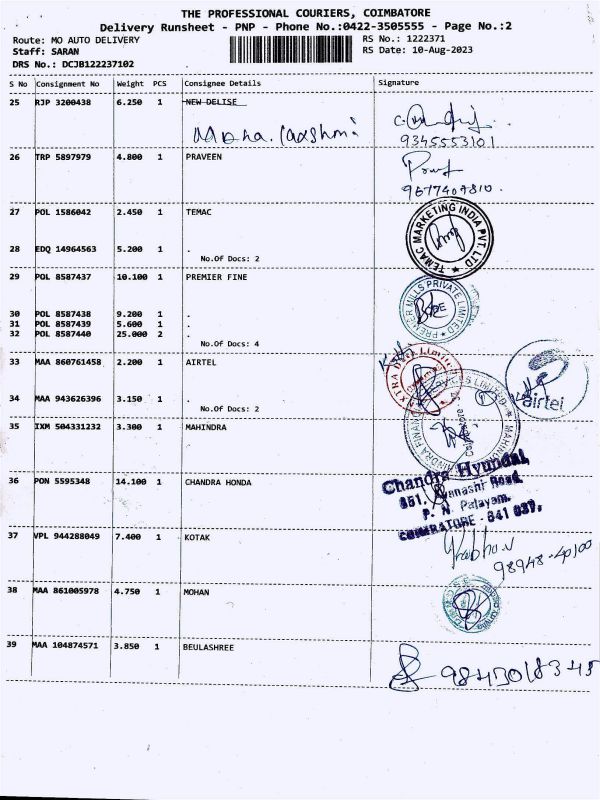 THE PROFESSIONAL COURIERS, COIMBATORE
Delivery Runsheet - PNP - Phone No.:0422-3505555 - Page No.:2
Route: MO AUTO DELIVERY
RS No.: 1222371
Staff: SARAN
RS Date: 10-Aug-2023
DRS No.: DCJB122237102
S No Consignment No Weight PCS Consignee Details Signature
25 RJP 3200438 6.250 1 NEW DELISE
Maha. laxshmi
9345553101
26 TRP 5897979 4.800 1 PRAVEEN
9677409810.
27 POL 1586042 2.450 1 TEMAC
TEMAC MARKETING INDIA PVT. LTD
28 EDQ 14964563 5.200 1 .
No.Of Docs: 2
29 POL 8587437 10.100 1 PREMIER FINE
PREMIER MILLS PRIVATE LIMITED
30 POL 8587438 9.200 1 .
31 POL 8587439 5.600 1 .
32 POL 8587440 25.000 2 .
No.Of Docs: 4
33 MAA 860761458 2.200 1 AIRTEL
airtel
34 MAA 943626396 3.150 1 .
No.Of Docs: 2
35 IXM 504331232 3.300 1 MAHINDRA
36 PON 5595348 14.100 1 CHANDRA HONDA
Chandra Hyundai,
851, Avanashi Road,
P. N. Palayam,
COIMBATORE - 641 037,
37 VPL 944288049 7.400 1 KOTAK
Prabhu.N
98948-40100
38 MAA 861005978 4.750 1 MOHAN
39 MAA 104874571 3.850 1 BEULASHREE
9843018345